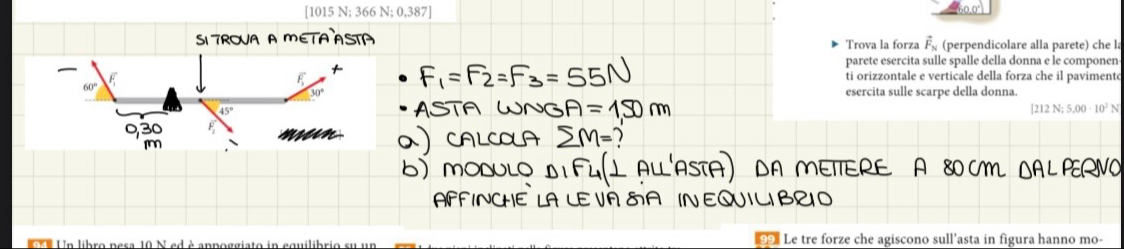 [1015 N; 366 N; 0,387]
60,0°
SI TROVA A METÀ ASTA
Trova la forza F⃗N (perpendicolare alla parete) che la
parete esercita sulle spalle della donna e le componen-
ti orizzontale e verticale della forza che il pavimento
esercita sulle scarpe della donna.
[212 N; 5,00 · 10² N
60°
F⃗1
+
30°
45°
0,30
m
• F1=F2=F3=55N
• ASTA LUNGA = 1,50 m
a) CALCOLA ΣM=?
b) MODULO DI F4 (⊥ ALL'ASTA) DA METTERE A 80 cm DAL PERNO
AFFINCHÈ LA LEVA SIA IN EQUILIBRIO
94 Un libro pesa 10 N ed è appoggiato in equilibrio su un
99 Le tre forze che agiscono sull'asta in figura hanno mo-